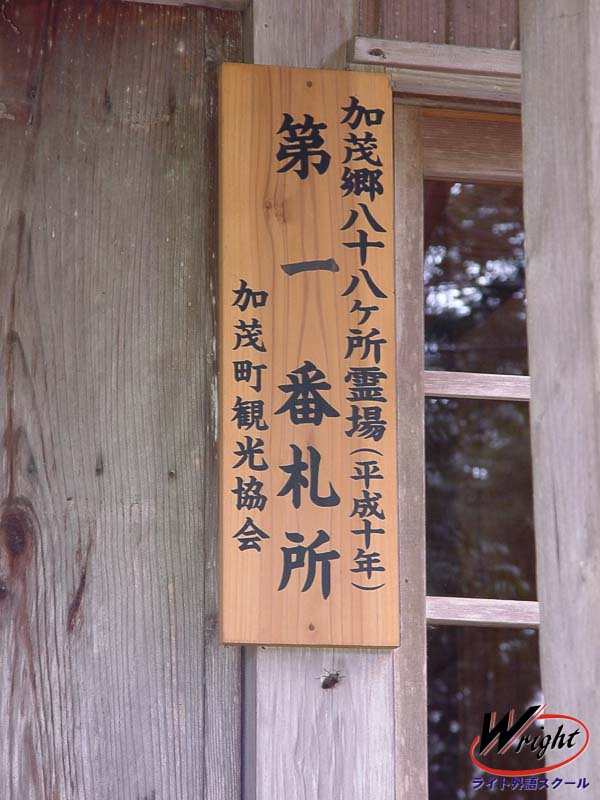 加茂郷八十八ケ所霊場(平成十年)
第一番札所
加茂町観光協会
Wright
ライト外語スクール